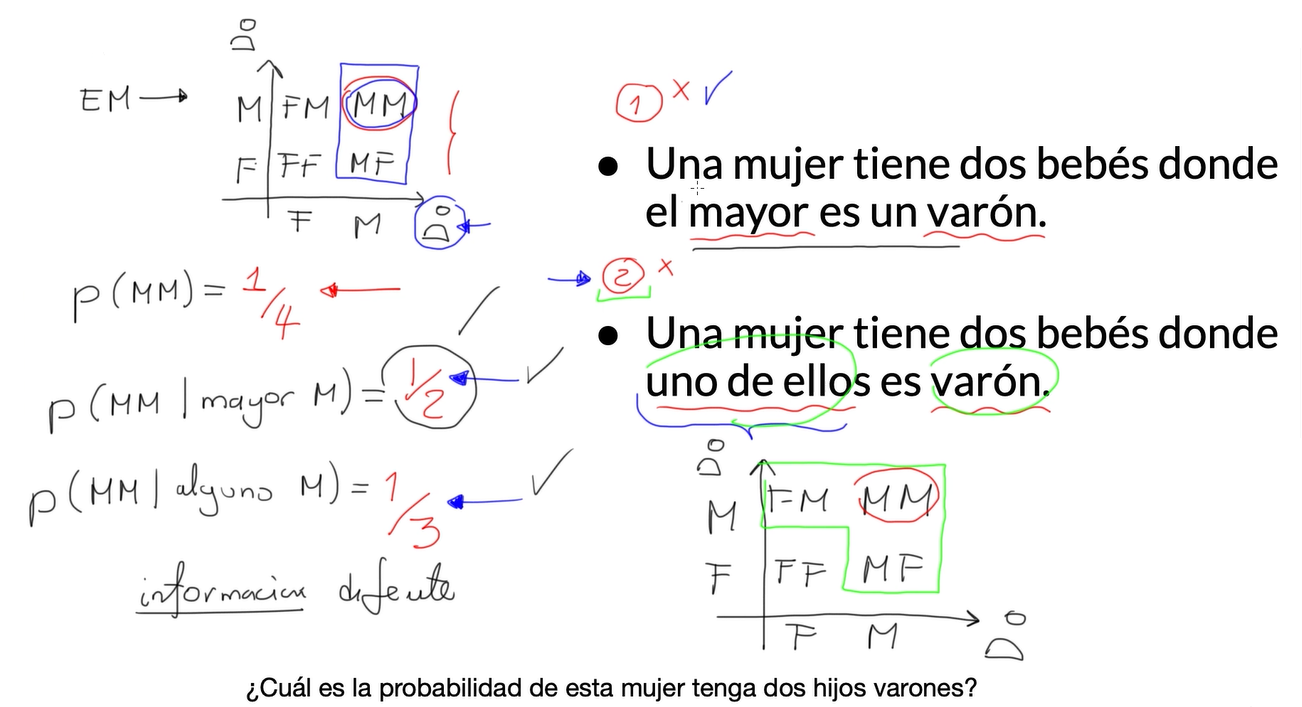 EM
M FM MM
F FF MF
F M
p(MM) = 1/4
p(MM | mayor M) = 1/2
p(MM | alguno M) = 1/3
informacion difeute
1 x ✓
• Una mujer tiene dos bebés donde
el mayor es un varón.
2 x
• Una mujer tiene dos bebés donde
uno de ellos es varón.
M FM MM
F FF MF
F M
¿Cuál es la probabilidad de esta mujer tenga dos hijos varones?